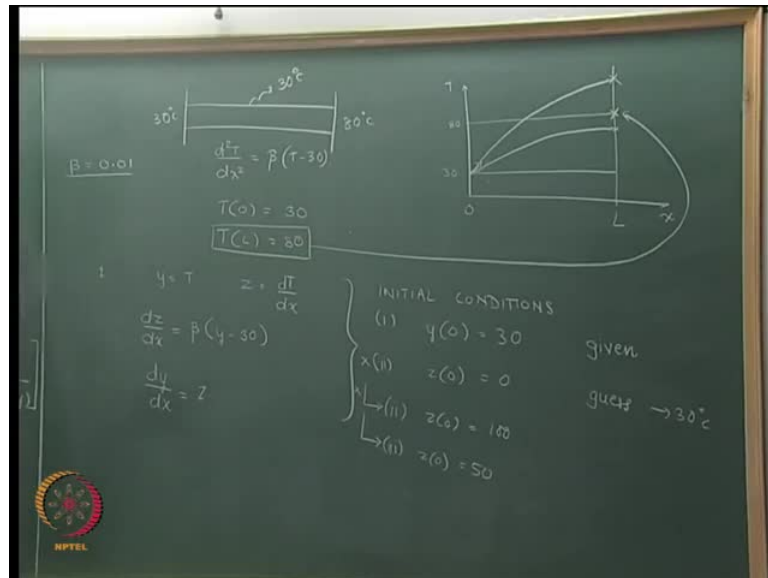 30°C
30°C
80°C
β = 0.01
d²T/dx² = β(T-30)
T(0) = 30
T(L) = 80
T
80
30
0
L
x
1
y = T z = dT/dx
dz/dx = β(y-30)
dy/dx = z
INITIAL CONDITIONS
(i) y(0) = 30 given
x(ii) z(0) = 0 guess → 30°C
x→(ii) z(0) = 100
→(ii) z(0) = 50
NPTEL